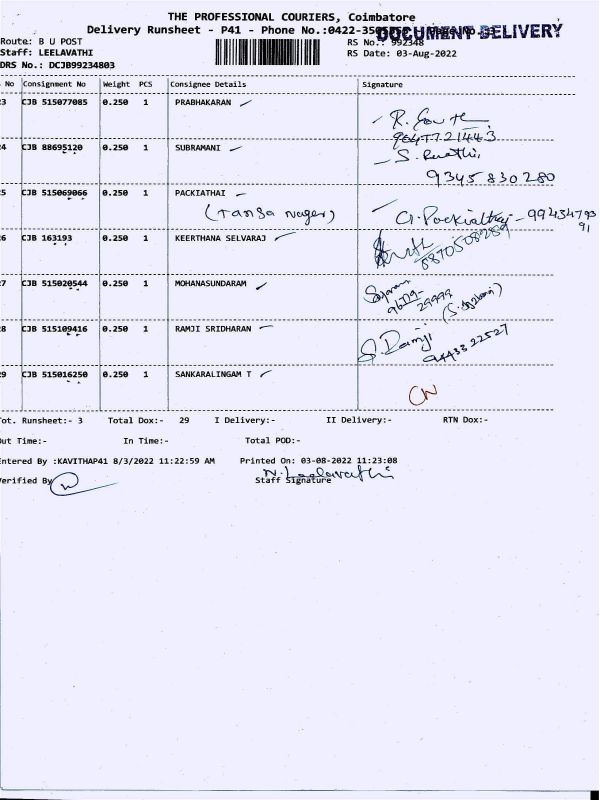 THE PROFESSIONAL COURIERS, Coimbatore
Delivery Runsheet - P41 - Phone No.:0422-
DOCUMENT DELIVERY
Route: B U POST
RS No.: 992348
Staff: LEELAVATHI
RS Date: 03-Aug-2022
DRS No.: DCJB99234803
No Consignment No Weight PCS Consignee Details Signature
3 CJB 515077085 0.250 1 PRABHAKARAN
9047721443
4 CJB 88695120 0.250 1 SUBRAMANI
9345830280
5 CJB 515069066 0.250 1 PACKIATHAI
6 CJB 163193 0.250 1 KEERTHANA SELVARAJ
8870508289
7 CJB 515020544 0.250 1 MOHANASUNDARAM
8 CJB 515109416 0.250 1 RAMJI SRIDHARAN S. Ramji
9443322527
9 CJB 515016250 0.250 1 SANKARALINGAM T CN
ot. Runsheet:- 3 Total Dox:- 29 I Delivery:- II Delivery:- RTN Dox:-
Out Time:- In Time:- Total POD:-
Entered By :KAVITHAP41 8/3/2022 11:22:59 AM Printed On: 03-08-2022 11:23:08
N. Leelavathi
Verified By Staff Signature